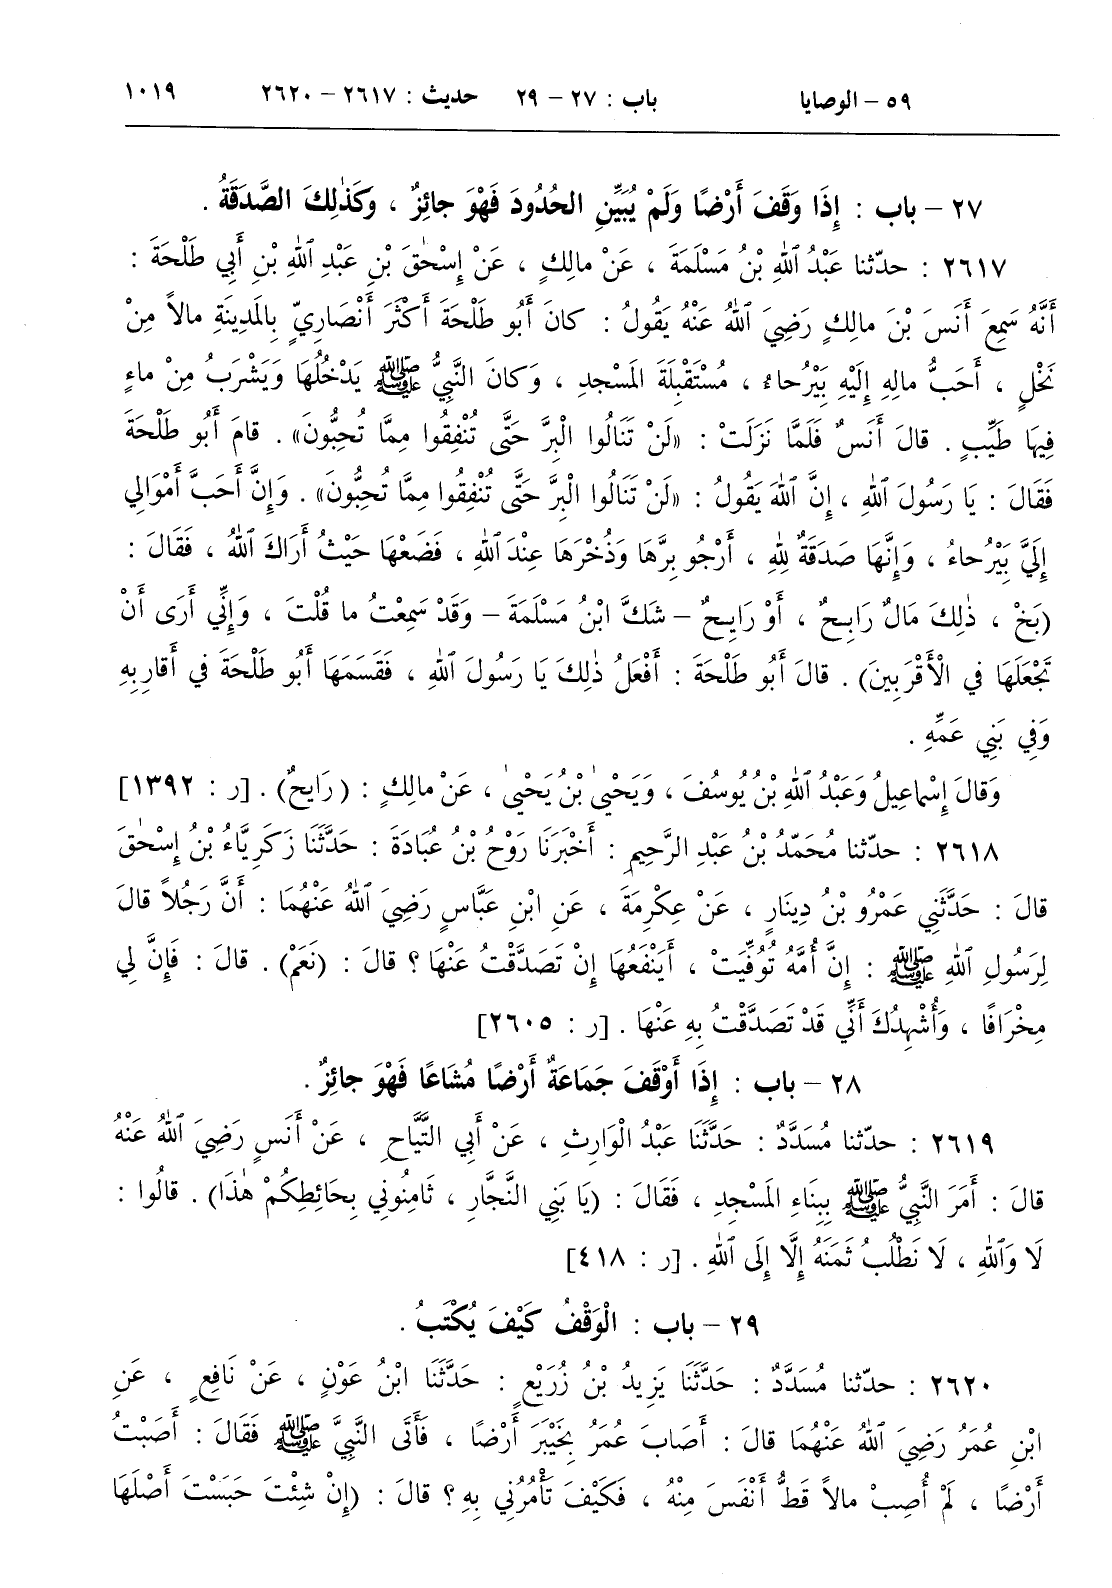 ٥٩ – الوصايا باب : ٢٧ – ٢٩ حديث : ٢٦١٧ – ٢٦٢٠ ١٠١٩
٢٧ – باب : إِذَا وَقَفَ أَرْضًا وَلَمْ يُبَيِّنِ الحُدُودَ فَهْوَ جائِزٌ ، وَكَذٰلِكَ الصَّدَقَةُ .
٢٦١٧ : حدّثنا عَبْدُ ٱللهِ بْنُ مَسْلَمَةَ ، عَنْ مالِكٍ ، عَنْ إِسْحٰقَ بْنِ عَبْدِ ٱللهِ بْنِ أَبِي طَلْحَةَ :
أَنَّهُ سَمِعَ أَنَسَ بْنَ مالِكٍ رَضِيَ ٱللهُ عَنْهُ يَقُولُ : كانَ أَبُو طَلْحَةَ أَكْثَرَ أَنْصَارِيٍّ بِالمَدِينَةِ مالاً مِنْ
نَخْلٍ ، أَحَبُّ مالِهِ إِلَيْهِ بَيْرُحاءُ ، مُسْتَقْبِلَةَ المَسْجِدِ ، وَكانَ النَّبِيُّ ﷺ يَدْخُلُهَا وَيَشْرَبُ مِنْ ماءٍ
فِيهَا طَيِّبٍ . قالَ أَنَسٌ فَلَمَّا نَزَلَتْ : «لَنْ تَنَالُوا الْبِرَّ حَتَّى تُنْفِقُوا مِمَّا تُحِبُّونَ» . قامَ أَبُو طَلْحَةَ
فَقَالَ : يَا رَسُولَ ٱللهِ ، إِنَّ ٱللهَ يَقُولُ : «لَنْ تَنَالُوا الْبِرَّ حَتَّى تُنْفِقُوا مِمَّا تُحِبُّونَ» . وَإِنَّ أَحَبَّ أَمْوَالِي
إِلَيَّ بَيْرُحاءُ ، وَإِنَّهَا صَدَقَةٌ لِلهِ ، أَرْجُو بِرَّهَا وَذُخْرَهَا عِنْدَ ٱللهِ ، فَضَعْهَا حَيْثُ أَرَاكَ ٱللهُ ، فَقَالَ :
(بَخْ ، ذٰلِكَ مَالٌ رَابِحٌ ، أَوْ رَايِحٌ – شَكَّ ابْنُ مَسْلَمَةَ – وَقَدْ سَمِعْتُ ما قُلْتَ ، وَإِنِّي أَرَى أَنْ
تَجْعَلَهَا في الْأَقْرَبِينَ) . قالَ أَبُو طَلْحَةَ : أَفْعَلُ ذٰلِكَ يَا رَسُولَ ٱللهِ ، فَقَسَمَهَا أَبُو طَلْحَةَ في أَقَارِبِهِ
وَفي بَنِي عَمِّهِ .
وَقالَ إِسْماعِيلُ وَعَبْدُ ٱللهِ بْنُ يُوسُفَ ، وَيَحْيىٰ بْنُ يَحْيىٰ ، عَنْ مالِكٍ : (رَايِحٌ) . [ر : ١٣٩٢]
٢٦١٨ : حدّثنا مُحَمَّدُ بْنُ عَبْدِ الرَّحِيمِ : أَخْبَرَنَا رَوْحُ بْنُ عُبَادَةَ : حَدَّثَنَا زَكَرِيَّاءُ بْنُ إِسْحٰقَ
قالَ : حَدَّثَنِي عَمْرُو بْنُ دِينَارٍ ، عَنْ عِكْرِمَةَ ، عَنِ ابْنِ عَبَّاسٍ رَضِيَ ٱللهُ عَنْهُمَا : أَنَّ رَجُلاً قالَ
لِرَسُولِ ٱللهِ ﷺ : إِنَّ أُمَّهُ تُوُفِّيَتْ ، أَيَنْفَعُهَا إِنْ تَصَدَّقْتُ عَنْهَا ؟ قالَ : (نَعَمْ) . قالَ : فَإِنَّ لِي
مِخْرَافًا ، وَأُشْهِدُكَ أَنِّي قَدْ تَصَدَّقْتُ بِهِ عَنْهَا . [ر : ٢٦٠٥]
٢٨ – باب : إِذَا أَوْقَفَ جَمَاعَةٌ أَرْضًا مُشَاعًا فَهْوَ جائِزٌ .
٢٦١٩ : حدّثنا مُسَدَّدٌ : حَدَّثَنَا عَبْدُ الْوَارِثِ ، عَنْ أَبِي التَّيَّاحِ ، عَنْ أَنَسٍ رَضِيَ ٱللهُ عَنْهُ
قالَ : أَمَرَ النَّبِيُّ ﷺ بِبِنَاءِ المَسْجِدِ ، فَقَالَ : (يَا بَنِي النَّجَّارِ ، ثَامِنُونِي بِحَائِطِكُمْ هٰذَا) . قالُوا :
لَا وَٱللهِ ، لَا نَطْلُبُ ثَمَنَهُ إِلَّا إِلَى ٱللهِ . [ر : ٤١٨]
٢٩ – باب : الْوَقْفُ كَيْفَ يُكْتَبُ .
٢٦٢٠ : حدّثنا مُسَدَّدٌ : حَدَّثَنَا يَزِيدُ بْنُ زُرَيْعٍ : حَدَّثَنَا ابْنُ عَوْنٍ ، عَنْ نَافِعٍ ، عَنِ
ابْنِ عُمَرُ رَضِيَ ٱللهُ عَنْهُمَا قالَ : أَصَابَ عُمَرُ بِخَيْبَرَ أَرْضًا ، فَأَتَى النَّبِيَّ ﷺ فَقَالَ : أَصَبْتُ
أَرْضًا ، لَمْ أُصِبْ مالاً قَطُّ أَنْفَسَ مِنْهُ ، فَكَيْفَ تَأْمُرُنِي بِهِ ؟ قالَ : (إِنْ شِئْتَ حَبَسْتَ أَصْلَهَا